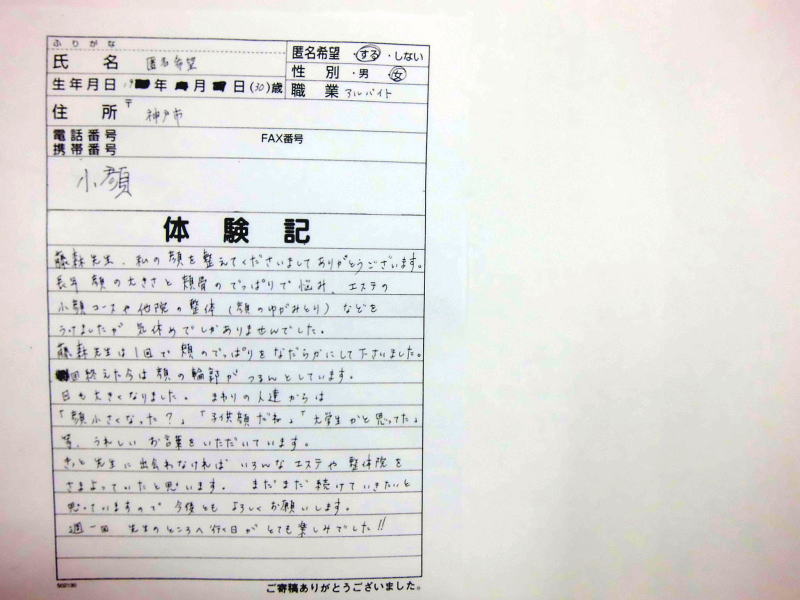 ふりがな
氏名 匿名希望
匿名希望 ・する ・しない
性別 ・男 ・女
生年月日 19 年 月 日 (30)歳
職業 アルバイト
住所 〒 神戸市
電話番号
携帯番号
FAX番号
小顔
体験記
藤森先生、私の顔を整えてくださいましてありがとうございます。
長年 顔の大きさと頬骨のでっぱりで悩み、エステの
小顔コースや他院の整体(顔のゆがみとり)などを
うけましたが 気休めでしかありませんでした。
藤森先生は1回で頬のでっぱりをなだらかにして下さいました。
回終えた今は顔の輪郭がつるんとしています。
目も大きくなりました。 まわりの人達からは
「顔小さくなった?」「子供顔だね」「大学生かと思ってた」
等、うれしいお言葉をいただいています。
きっと先生に出会わなければ いろんなエステや整体院を
さまよっていたと思います。 まだまだ続けていきたいと
思っていますので 今後とも よろしくお願いします。
週一回 先生のところへ行く日が とても楽しみでした!!
502130
ご寄稿ありがとうございました。